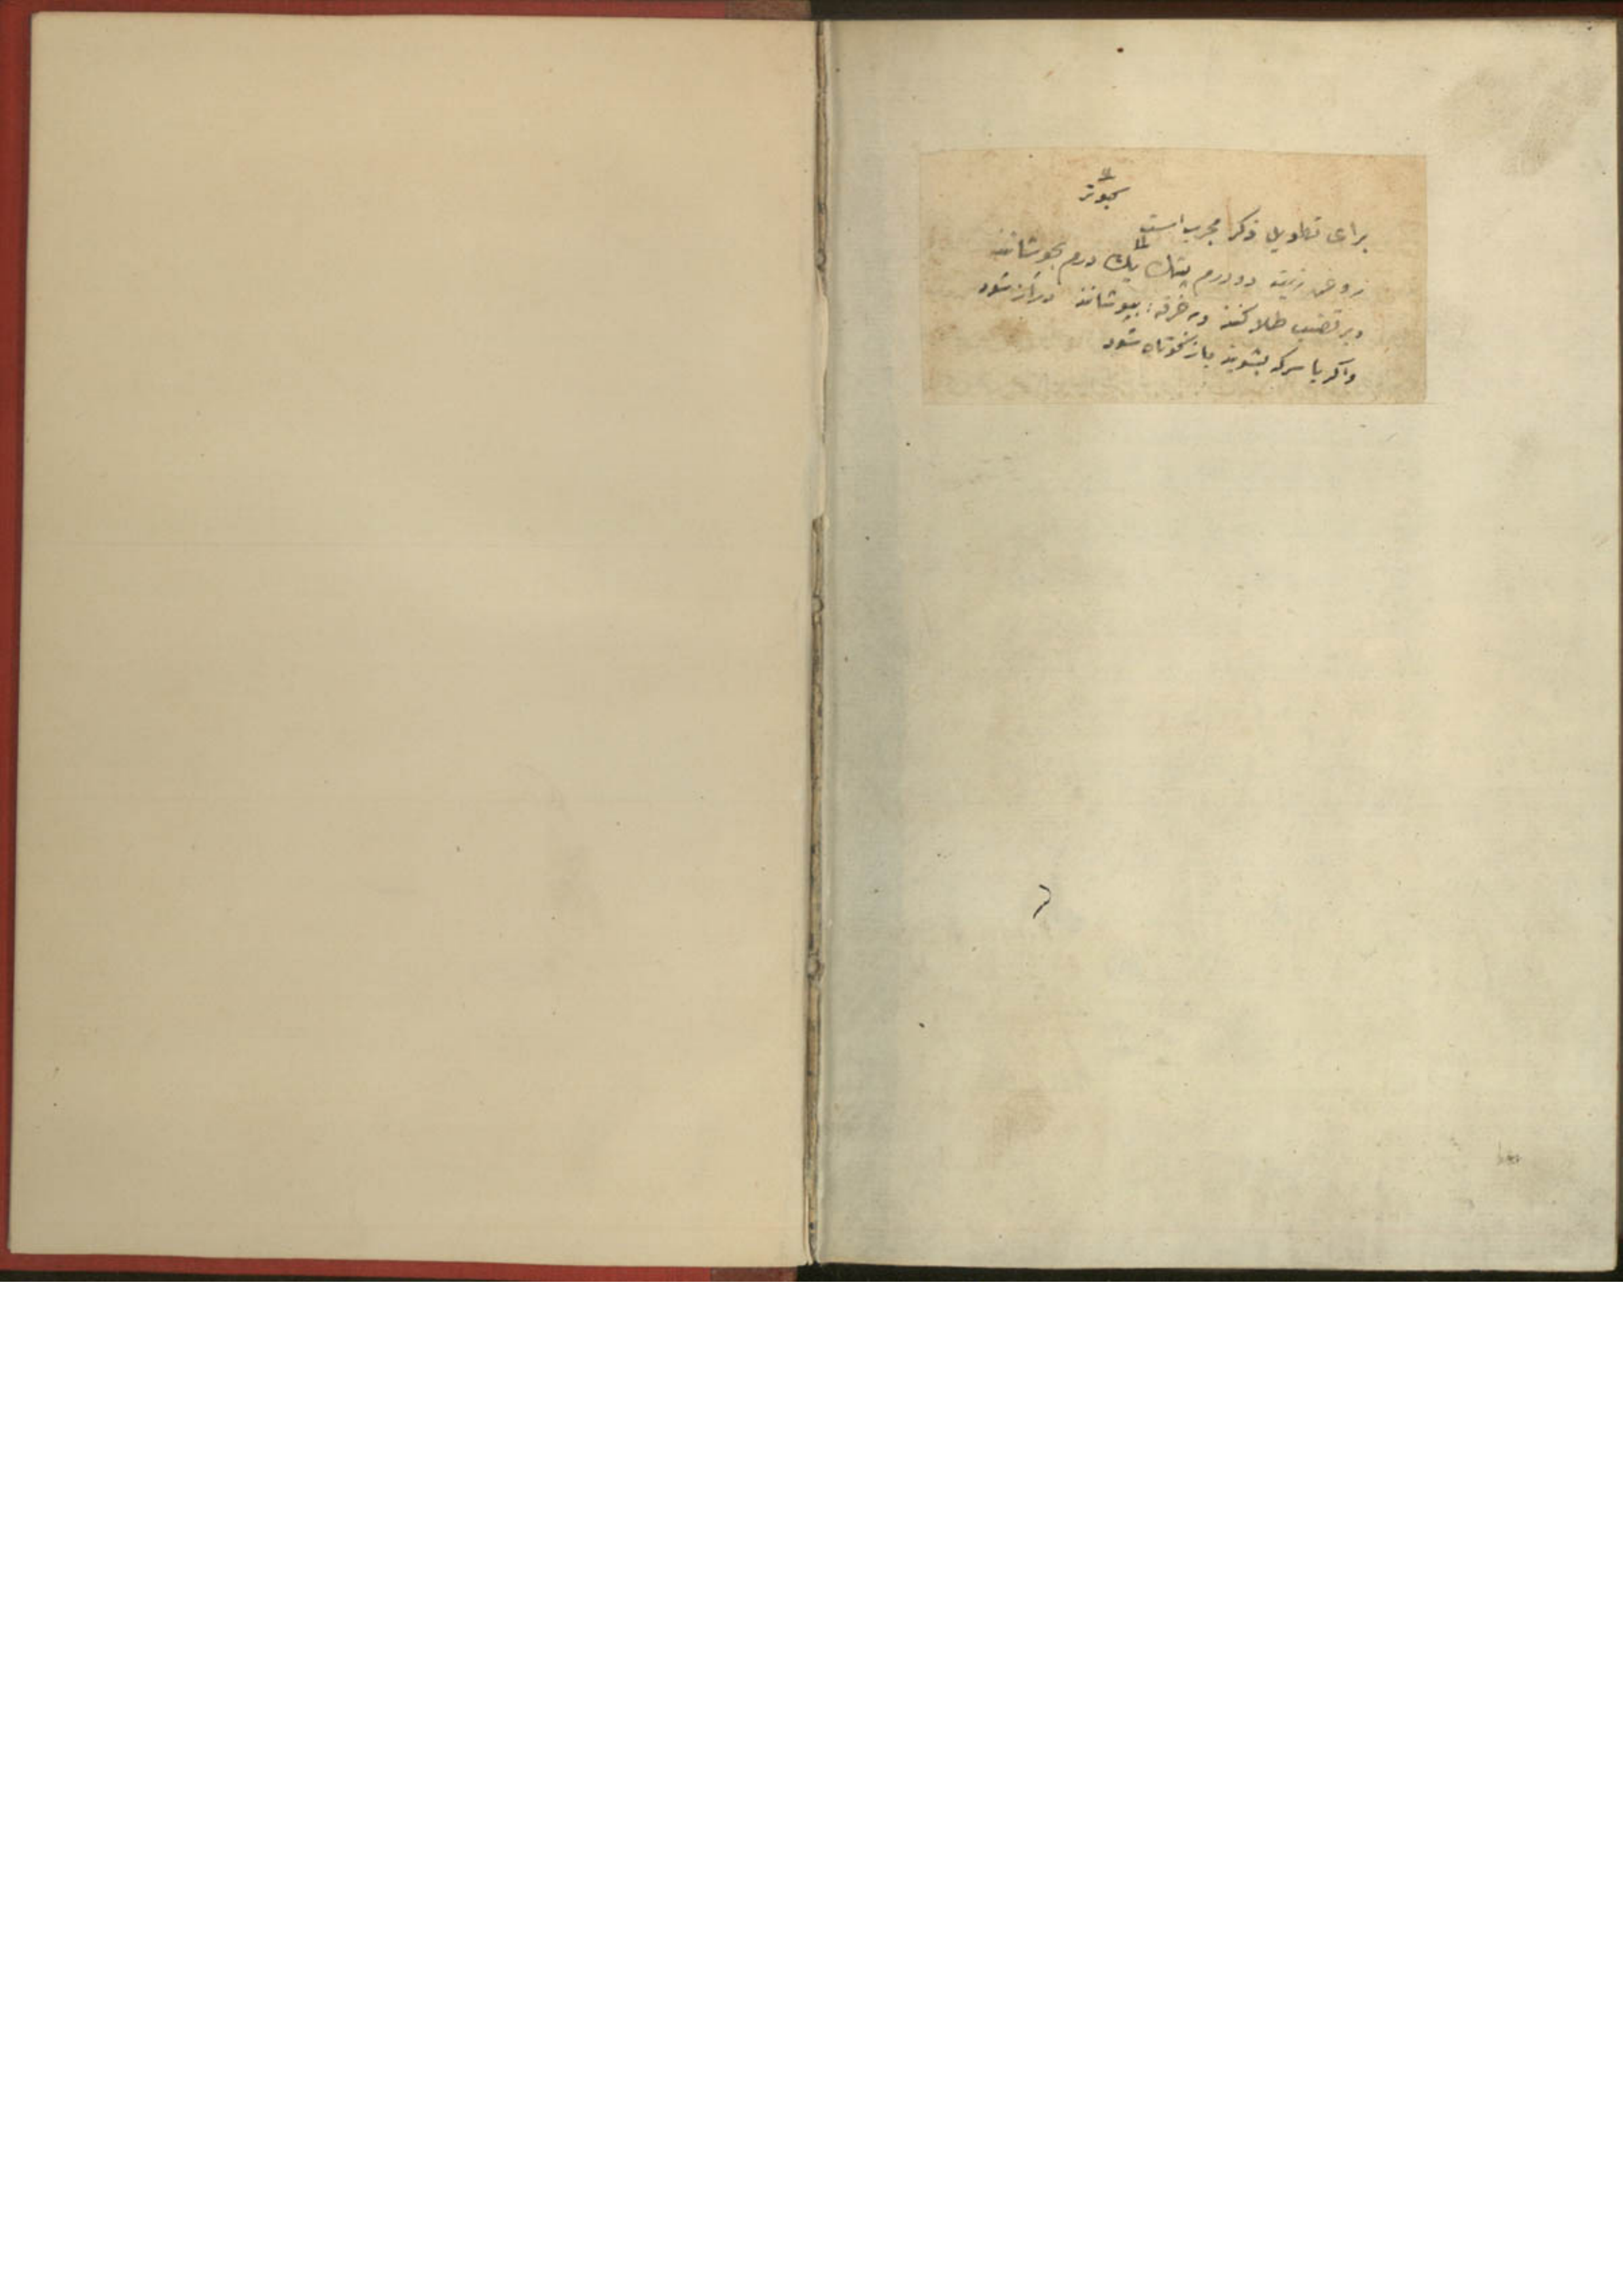 کبوتر
برای تطویل ذکر مجرب است
روغن زیت دو درم یک درم بجوشانند
و بر قضیب طلا کنند و خرقه بپوشانند دراز شود
واکر با سرکه بشویند باز کوتاه شود